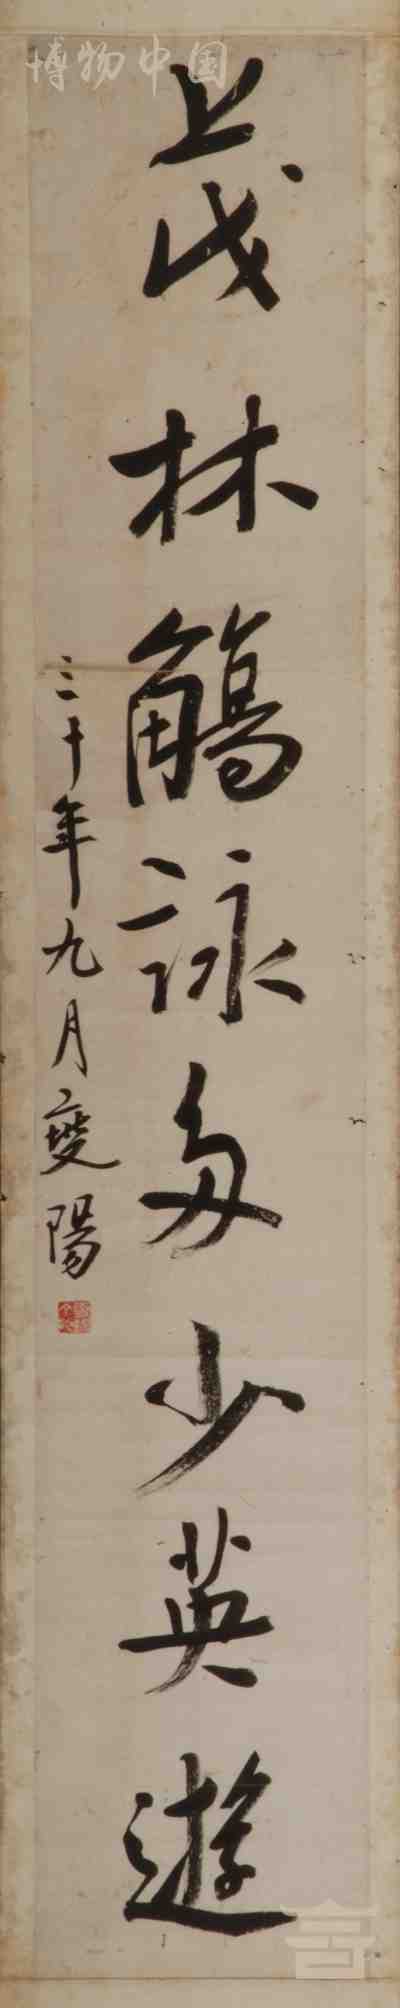 博物中国
茂林觴詠多少英遊
三十年九月燮陽